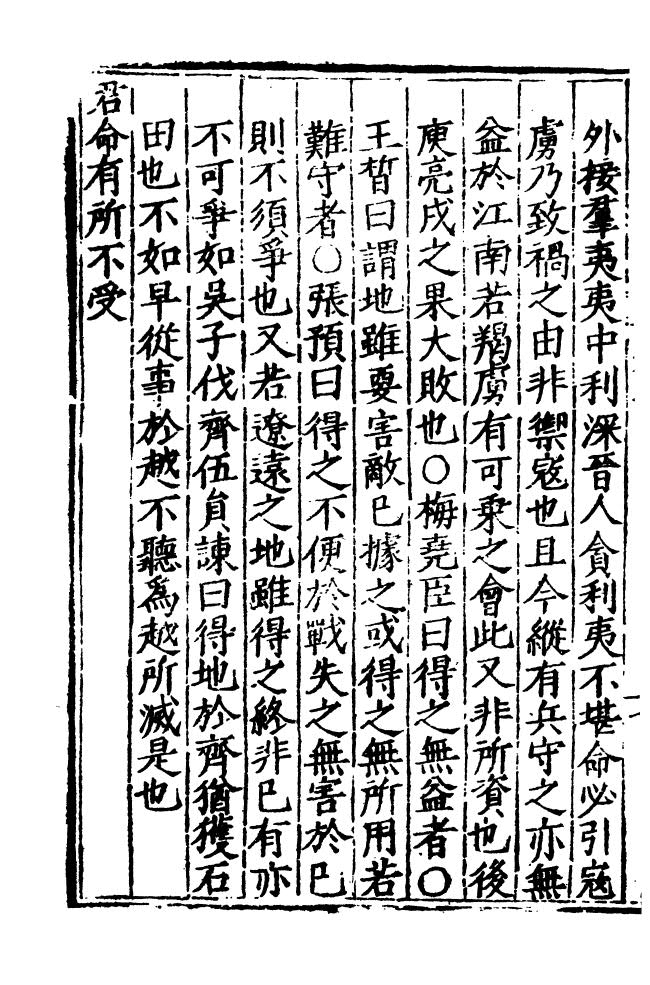 外接羣夷夷中利深晉人貪利夷不堪命必引寇
虜乃致禍之由非禦寇也且今縱有兵守之亦無
益於江南若羯虜有可乗之會此又非所資也後
庾亮戍之果大敗也〇梅堯臣曰得之無益者〇
王晳曰謂地雖要害敵已據之或得之無所用若
難守者〇張預曰得之不便於戰失之無害於已
則不須爭也又若遼遠之地雖得之終非已有亦
不可爭如吳子伐齊伍員諫曰得地於齊猶獲石
田也不如早從事於越不聽爲越所滅是也
君命有所不受